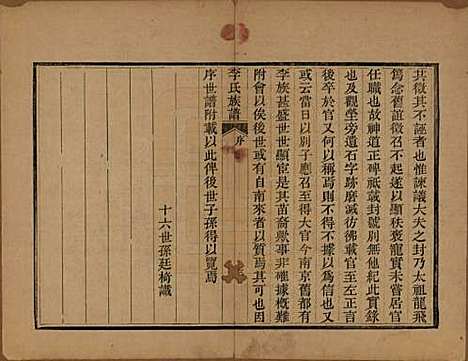 其徵其不誣者也惟諫議大夫之封乃太祖龍飛
篤念舊誼徵召不起遂以顯秩褒寵實未嘗居官
任職也故神道正碑祇載封號別無他紀此實錄
也及觀塋旁遺石字跡磨滅彷彿載官
後卒於官又何以稱焉則亦不得以為信也又
或云當日以別子應召至得大官今南京舊都有
李族甚盛世世顯宦是其苗裔歟事非確據概難
附會以俟後世或有自南來者以質焉其可也因
序世譜附載以此俾後世子孫得以覽焉
十六世孫廷椅識
李氏族譜
序